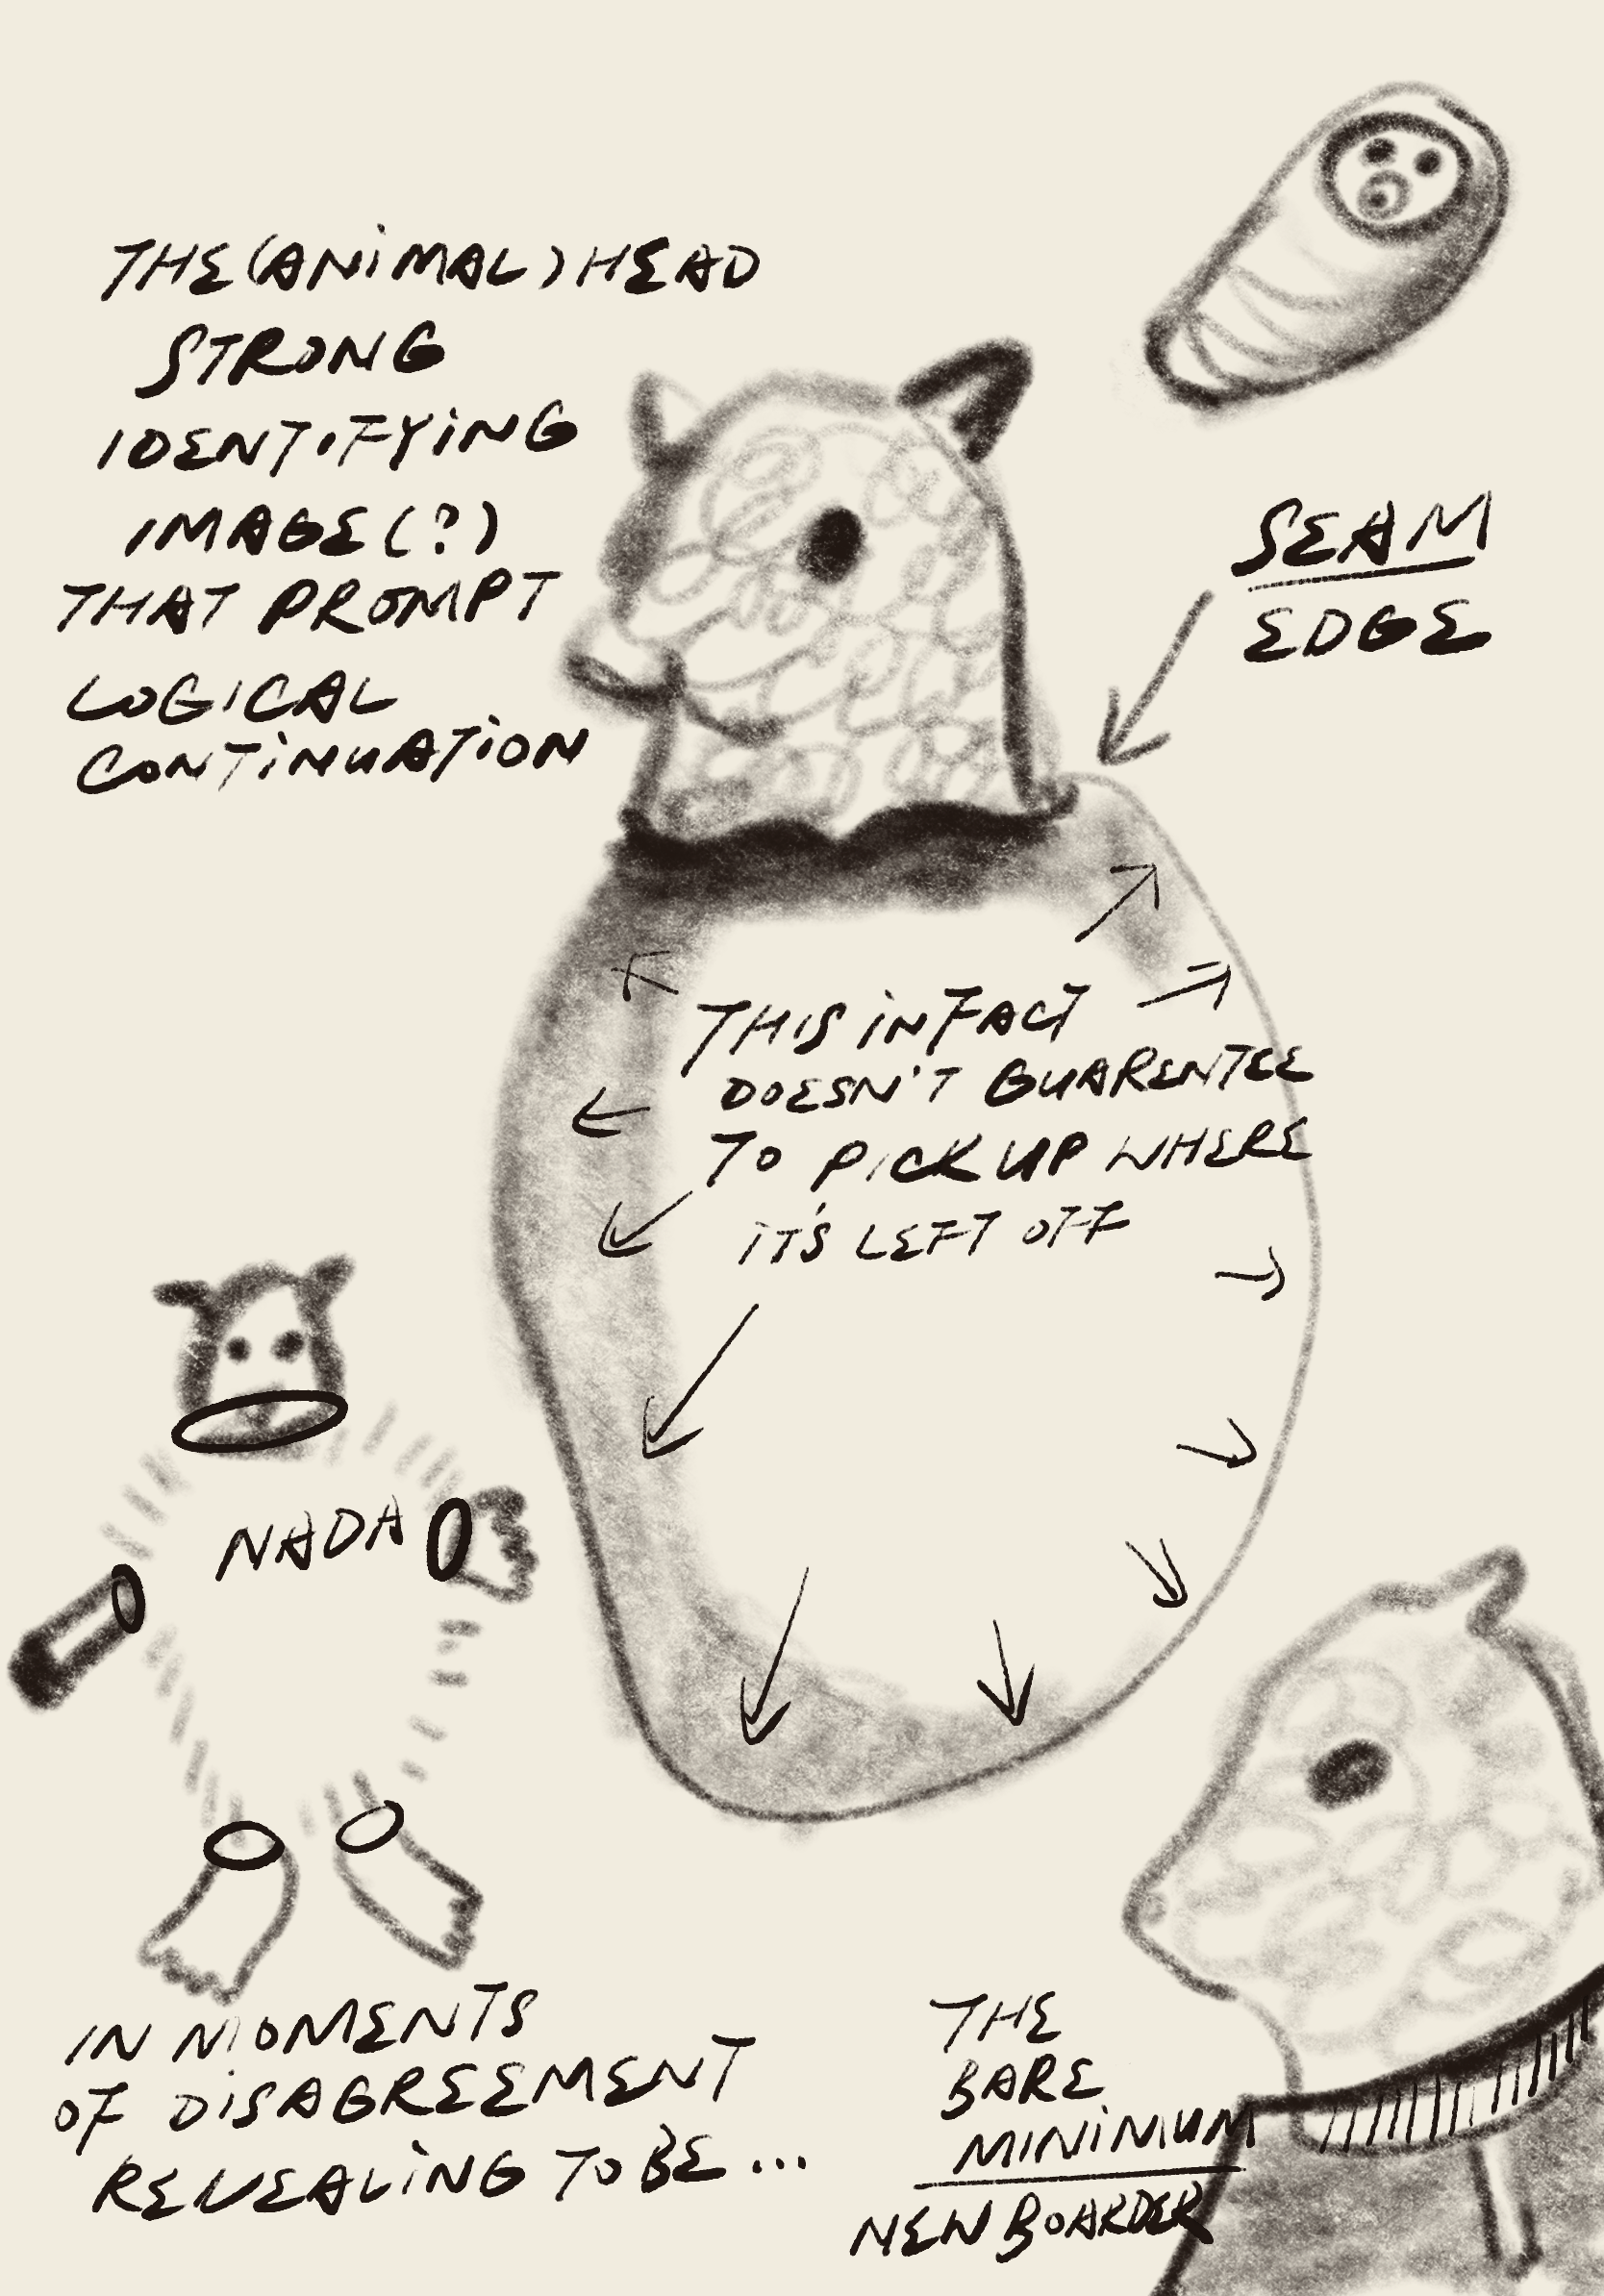 THE (ANiMAL) HEAD
STRONG
IDENTIFYING
IMAGE (?)
THAT PROMPT
LOGICAL
CONTiNUATiON
SEAM
EDGE
THIS iN FACT
DOESN'T GUARENTEE
TO PICK UP WHERE
iT'S LEFT OFF
NADA
IN MOMENTS
OF DiSAGREEMENT
REVEALiNG TO BE...
THE
BARE
MINiMUM
NEW BOARDER